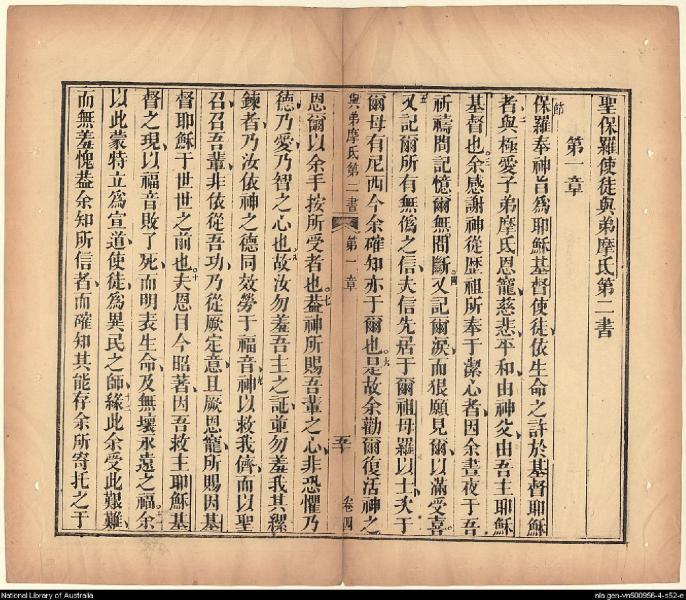 聖保羅使徒與弟摩氏第二書
第一章
節
保羅奉神旨爲耶穌基督使徒依生命之許於基督耶穌
者二與極愛子弟摩氏恩寵慈悲平和由神父由吾主耶穌
基督也三余感謝神從歷祖所奉于潔心者因余晝夜于吾
祈禱間記憶爾無間斷四又記爾淚而狠願見爾以滿受喜
五又記爾所有無僞之信夫信先居于爾祖母羅以士次于
爾母有尼西今余確知亦于爾也六是故余勸爾復活神之
與弟摩氏第二書
第一章
卷四
恩爾以余手按所受者也七葢神所賜吾輩之心非恐懼乃
德乃愛乃智之心也八故汝勿羞吾主之証並勿羞我其縲
鍊者乃汝依神之德同效勞于福音九神以救我儕而以聖
召召吾輩非依從吾功乃從厥定意且厥恩寵所賜因基
督耶穌于世世之前也十夫恩目今昭著因吾救主耶穌基
督之現以福音敗了死而明表生命及無壞永遠之福十一余
以此蒙特立爲宣道使徒爲異民之師十二緣此余受此艱難
而無羞愧葢余知所信者而確知其能存余所寄托之于
National Library of Australia
nla.gen-vn500956-4-s52-e